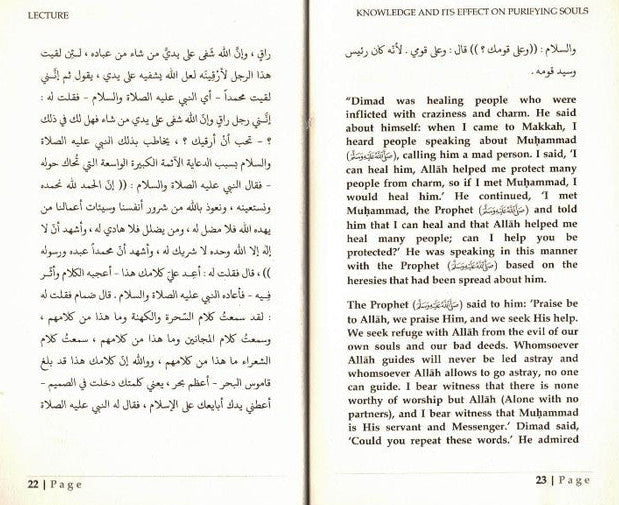 LECTURE
راقٍ ، وإنَّ الله شَفى على يديَّ من شاء من عباده ، لـئِن لقيت
هذا الرجل لأرْقِينَه لعل الله يشفيه على يدي ، يقول ثم إنَّني
لقيت محمداً - أي النبي عليه الصلاة والسلام - فقلت له :
إنَّني رجل راقٍ وإنَّ الله شفى على يدي من شاء فهل لك في ذلك
؟ - تحب أنْ أرقيك ؟ ، يخاطب بذلك النبي عليه الصلاة
والسلام بسبب الدعاية الآثمة الكبيرة الواسعة التي تُحاك حوله
- فقال النبي عليه الصلاة والسلام : (( إنّ الحمد لله نحمده
ونستعينه ، ونعوذ بالله من شرور أنفسنا وسيئات أعمالنا من
يهده الله فلا مضل له ، ومن يضلل فلا هادي له ، وأشهد أنْ لا
إلٰه إلا الله وحده لا شريك له ، وأشهد أنَّ محمداً عبده ورسوله
)) ، قال فقلت له : أعِـد عليّ كلامك هذا - أعجبه الكلام وأثَّـر
فـيـه - فأعاده النبي عليه الصلاة والسلام . قال ضمام فقلت له
: لقد سمعتُ كلام السَّحرة والكهنة وما هذا من كلامهم ،
وسمعتُ كلام المجانين وما هذا من كلامهم ، سمعتُ كلام
الشعراء ما هذا من كلامهم ، ووالله إنَّ كلامك هذا قد بلغ
قاموس البحر - أعظم بحر ، يعني كلمتك دخلت في الصميم -
أعطني يدك أبايعك على الإسلام ، فقال له النبي عليه الصلاة
22 | Page
KNOWLEDGE AND ITS EFFECT ON PURIFYING SOULS
والسلام : ((وعلى قومك ؟ )) قال : وعلى قومي . لأنَّه كان رئيس
وسيد قومه .
“Dimad was healing people who were
inflicted with craziness and charm. He said
about himself: when I came to Makkah, I
heard people speaking about Muḥammad
(صَلَّى اللهُ عَلَيْهِ وَسَلَّمَ), calling him a mad person. I said, ‘I
can heal him, Allāh helped me protect many
people from charm, so if I met Muḥammad, I
would heal him.’ He continued, ‘I met
Muḥammad, the Prophet (صَلَّى اللهُ عَلَيْهِ وَسَلَّمَ) and told
him that I can heal and that Allāh helped me
heal many people; can I help you be
protected?’ He was speaking in this manner
with the Prophet (صَلَّى اللهُ عَلَيْهِ وَسَلَّمَ) based on the
heresies that had been spread about him.
The Prophet (صَلَّى اللهُ عَلَيْهِ وَسَلَّمَ) said to him: ‘Praise be
to Allāh, we praise Him, and we seek His help.
We seek refuge with Allāh from the evil of our
own souls and our bad deeds. Whomsoever
Allāh guides will never be led astray and
whomsoever Allāh allows to go astray, no one
can guide. I bear witness that there is none
worthy of worship but Allāh (Alone with no
partners), and I bear witness that Muḥammad
is His servant and Messenger.’ Dimad said,
‘Could you repeat these words.’ He admired
23 | Page